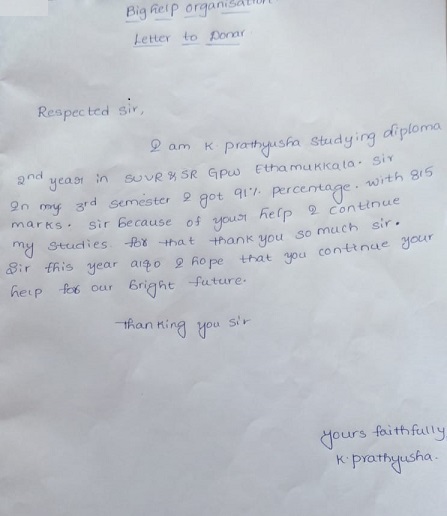 Big help organisation
Letter to Donar
Respected sir,
I am K prathyusha studying diploma
2nd year in SUVR & SR GPW Ethamukkala. sir
In my 3rd semester I got 91% percentage. with 815
marks. sir because of your help I continue
my studies for that thank you so much sir.
Sir this year also I hope that you continue your
help for our bright future.
Thanking you sir
yours faithfully
K. prathyusha.